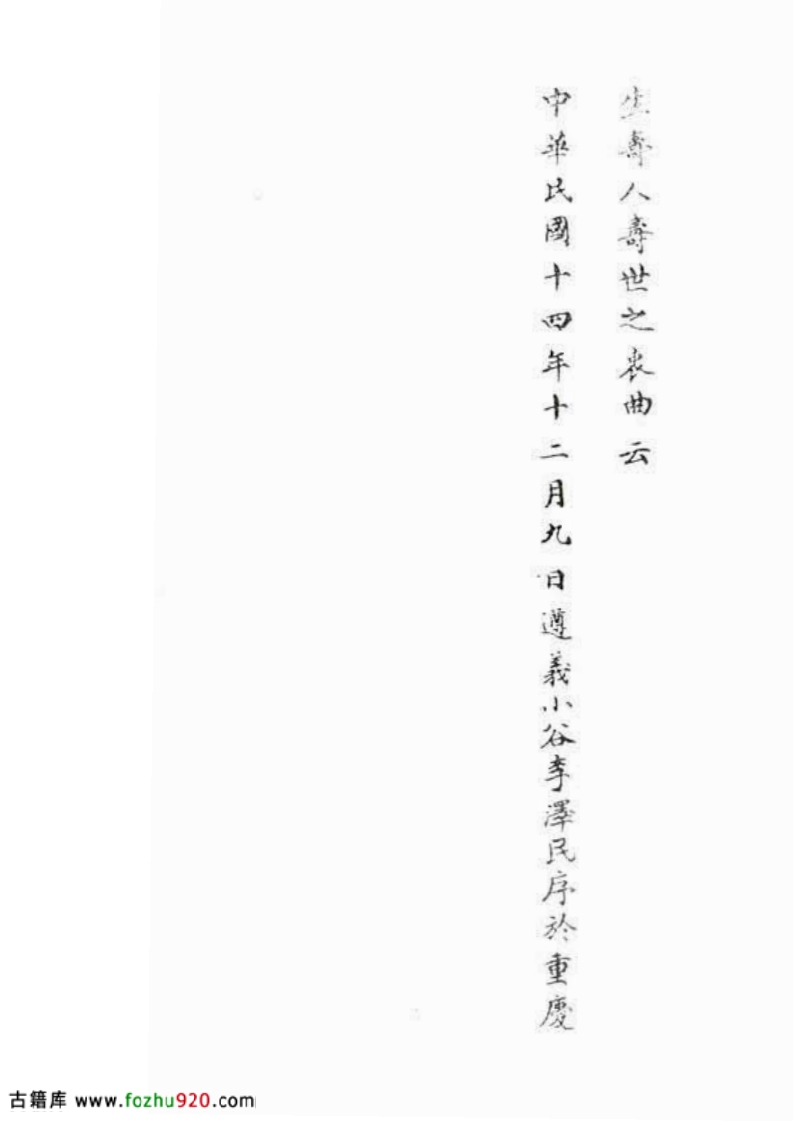 生壽人壽世之衷曲云
中華民國十四年十二月九日遵義小谷李澤民序於重慶
古籍库 www.fozhu920.com